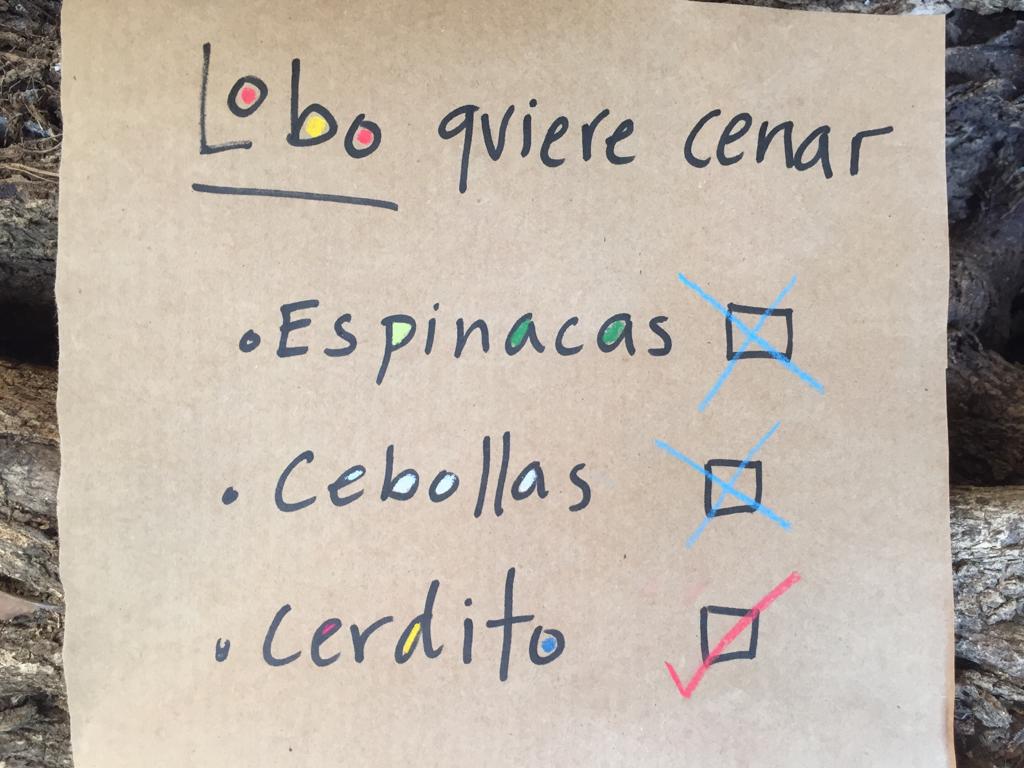 Lobo quiere cenar
• Espinacas
• Cebollas
• Cerdito